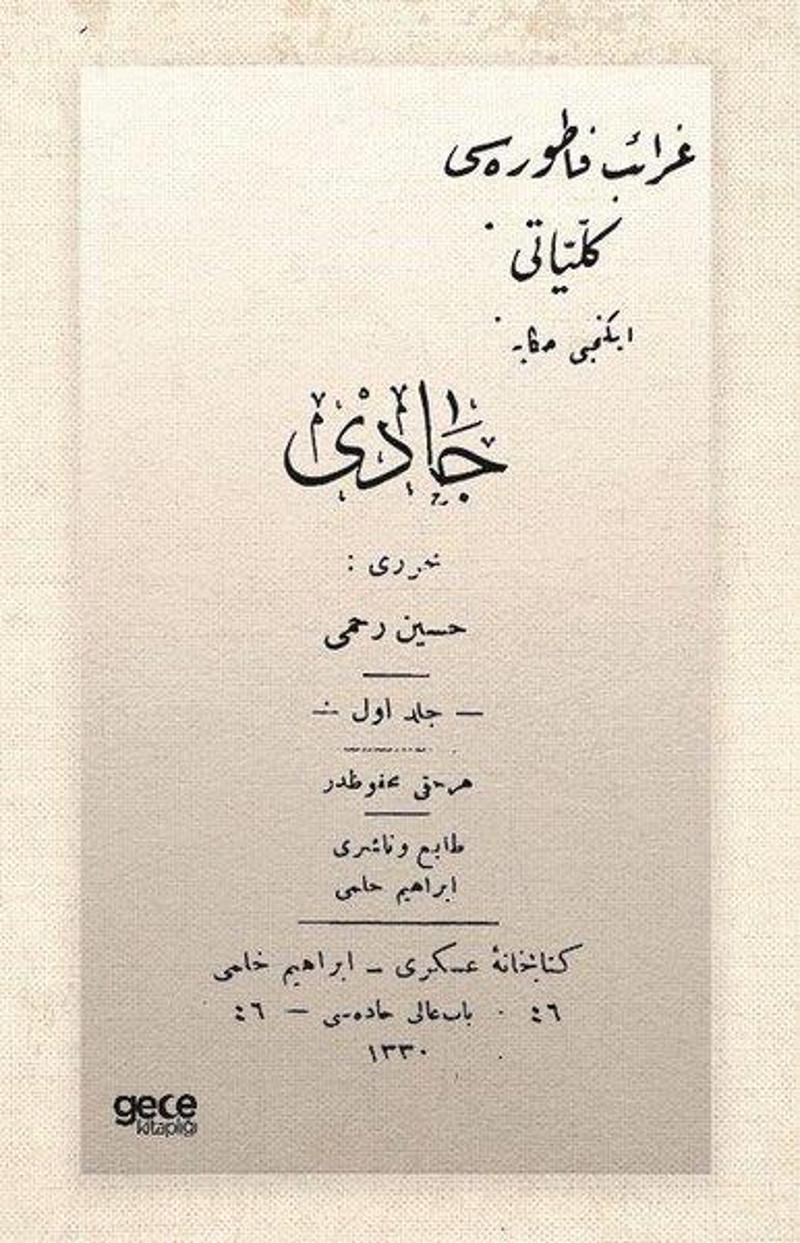 غرائب فاطوره‌سی
كلّيّاتی
ايكنجی حكايه
جادی
محرری :
حسين رحمی
— جلد اول —
هر حقی محفوظدر
طابع وناشری
ابراهيم حلمی
كتابخانهٔ عسكری – ابراهيم حلمی
باب‌عالی جاده‌سی —
١٣٣٠
gece
kitaplığı